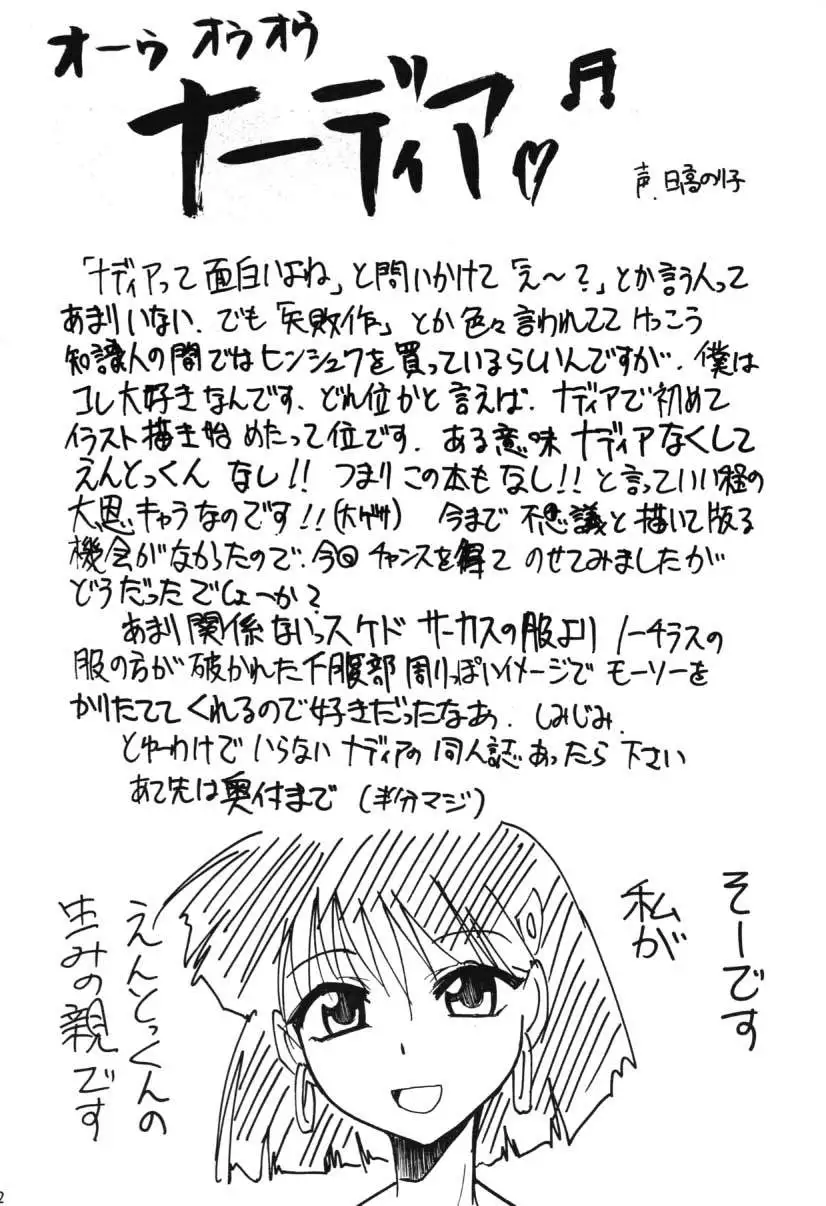 オーゥ オゥオゥ
ナーディア♡♬
声.日高のり子
「ナディアって面白いよね」と問いかけて「え〜?」とか言う人って
あまりいない.でも「失敗作」とか色々言われてて けっこう
知識人の間ではヒンシュクを買っているらしいんですが.僕は
コレ大好きなんです.どれ位かと言えば.ナディアで初めて
イラスト描き始めたって位です.ある意味ナディアなくして
えんとっくん なし!!つまりこの本もなし!!と言っていい程の
大恩キャラなのです!!(大ゲサ) 今まで不思議と描いて版る
機会がなかったので.今回チャンスを得て のせてみましたが
どうだったでしょーか?
あまり関係ないっスケド サーカスの服より ノーチラスの
服の方が破かれた下腹部周りっぽいイメージで モーソーを
かりたててくれるので好きだったなあっ.しみじみ.
とゆーわけで いらないナディアの同人誌あったら下さい
あて先は奥付まで(半分マジ)
そーです
私が
えんとっくんの
生みの親です
2